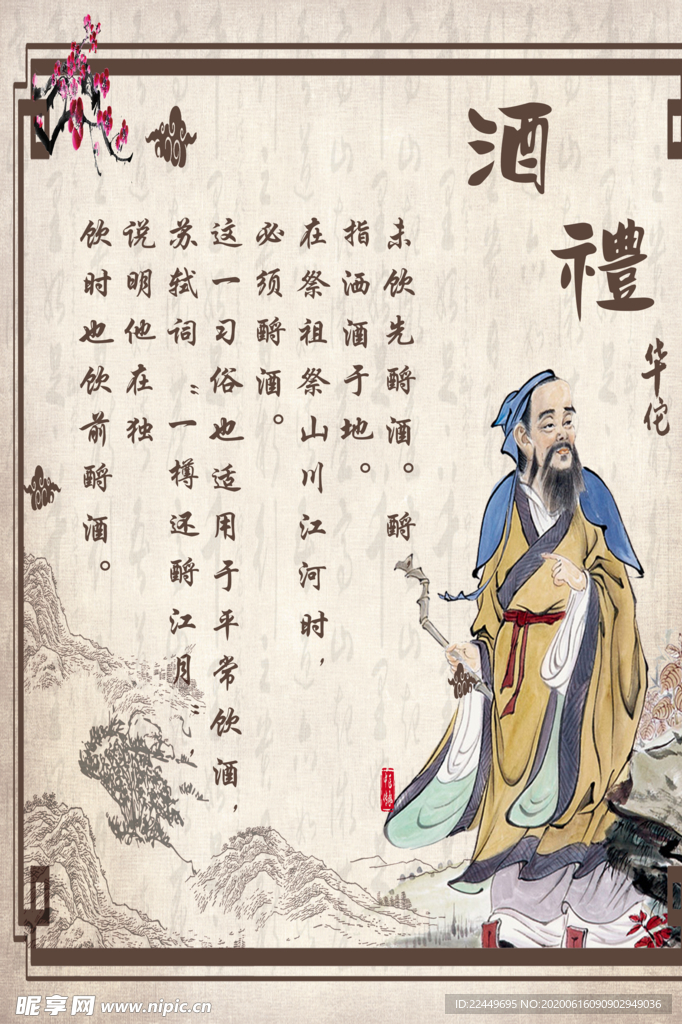 酒禮
华佗
未饮先酹酒。酹
指洒酒于地。
在祭祖祭山川江河时，
必须酹酒。
这一习俗也适用于平常饮酒，
苏轼词“一樽还酹江月”，
说明他在独
饮时也饮前酹酒。
昵享网 www.nipic.cn
ID:22449695 NO:20200616090902949036